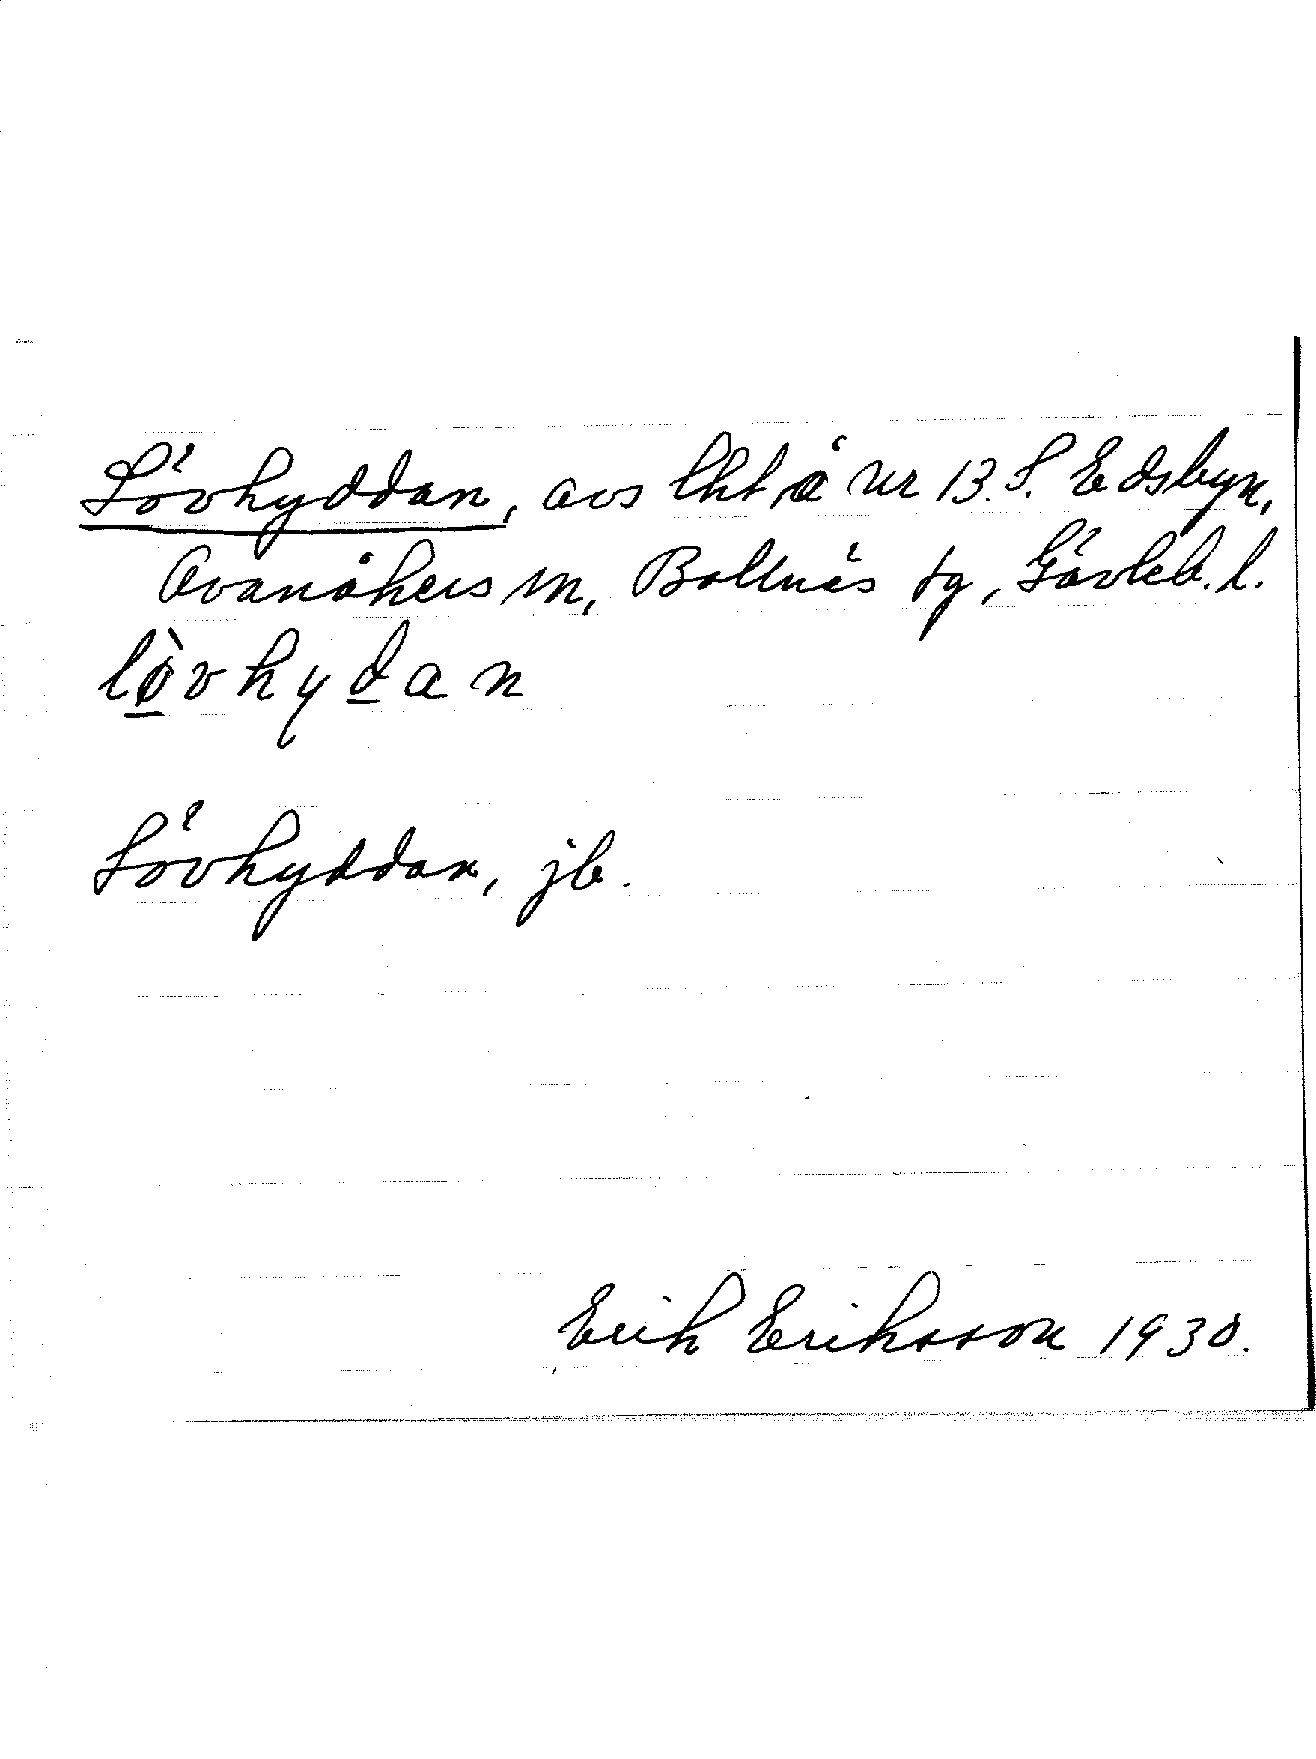 Lövhyddan, avs lht å nr 13 S. Edsbyn,
Ovanåkers sn, Bollnäs tg, Gävleb. l.
lòvhydan
Lövhyddan, jb.
Erik Eriksson 1930.